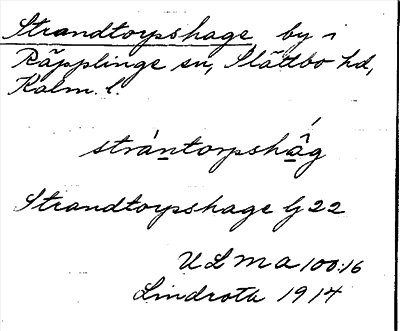 Strandtorpshage by i
Räpplinge sn, Slättbo hd,
Kalm. l.
strántorpshâg
Strandtorpshage G 22
ULMA 100:16
Lindroth 1914